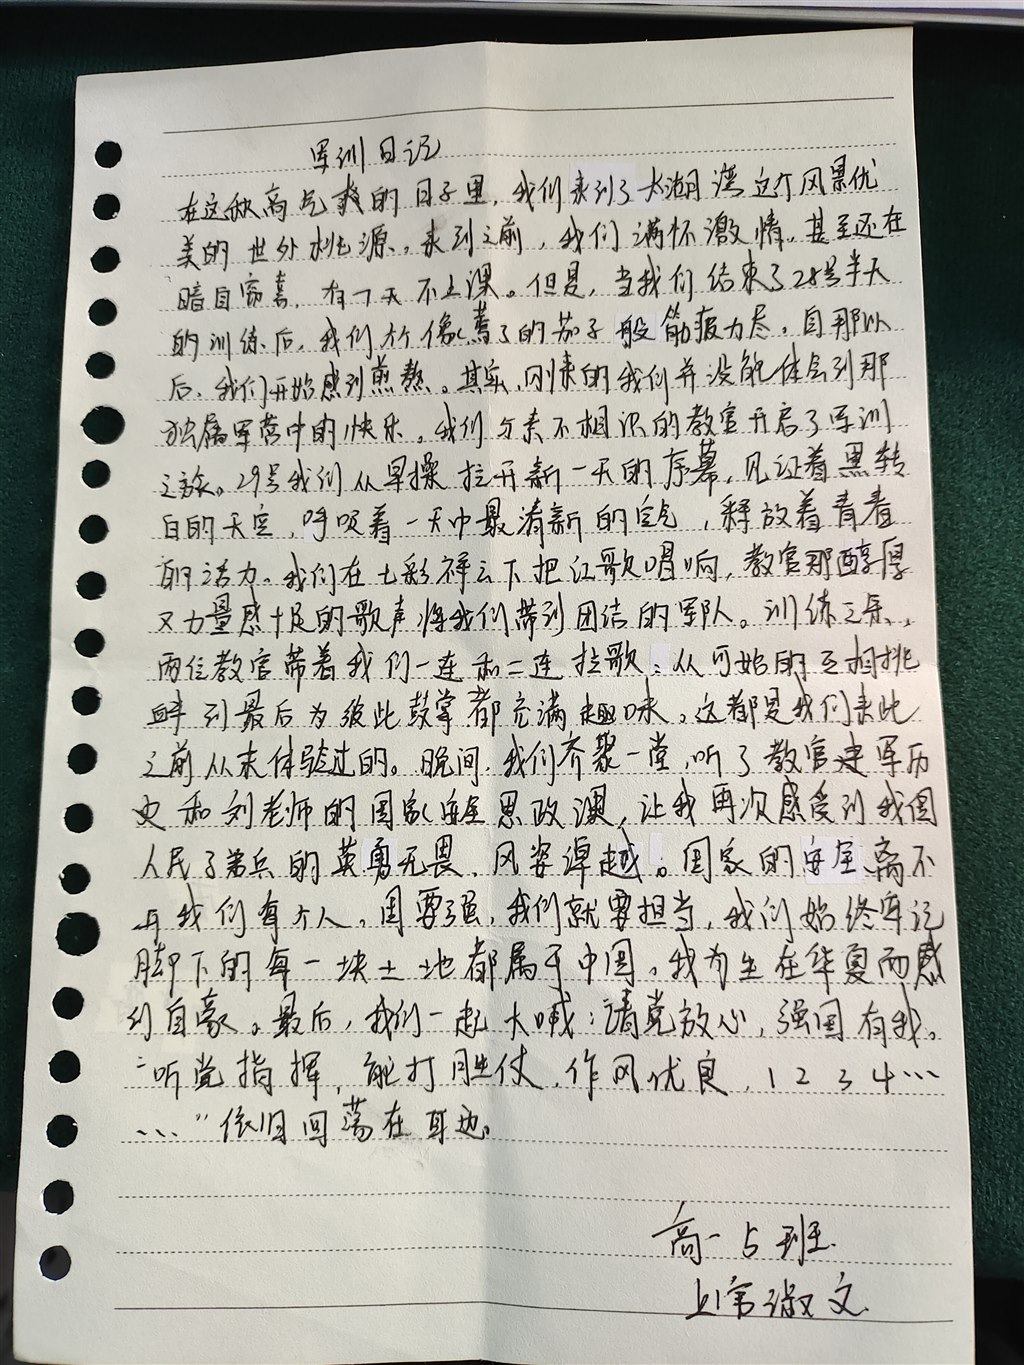 军训日记
在这秋高气爽的日子里，我们来到了太湖湾这个风景优
美的世外桃源。来到之前，我们满怀激情，甚至还在
暗自窃喜，有一天不上课。但是，当我们结束了28号半天
的训练后，我们个个像蔫了的茄子般筋疲力尽。自那以
后，我们开始感到煎熬。其实，刚来的我们并没能体会到那
独属军营中的快乐，我们与素不相识的教官开启了军训
之旅。29号我们从早操拉开新一天的序幕，见证着黑转
白的天空，呼吸着一天中最清新的空气，释放着青春
的活力。我们在七彩祥云下把红歌唱响，教官那醇厚
又力量感十足的歌声将我们带到团结的军队。训练之余，
两位教官带着我们一连和二连拉歌：从开始的互相挑
衅到最后为彼此鼓掌都充满趣味。这都是我们来此
之前从未体验过的。晚间，我们齐聚一堂，听了教官建军历
史和刘老师的国家安全思政课，让我再次感受到我国
人民子弟兵的英勇无畏，风姿淖越。国家的安全离不
开我们每个人，国要强，我们就要担当，我们始终牢记
脚下的每一块土地都属于中国。我为生在华夏而感
到自豪。最后，我们一起大喊：请党放心，强国有我。
“听党指挥，能打胜仗，作风优良，1 2 3 4…
…”依旧回荡在耳边。
高一5班
上官淑文